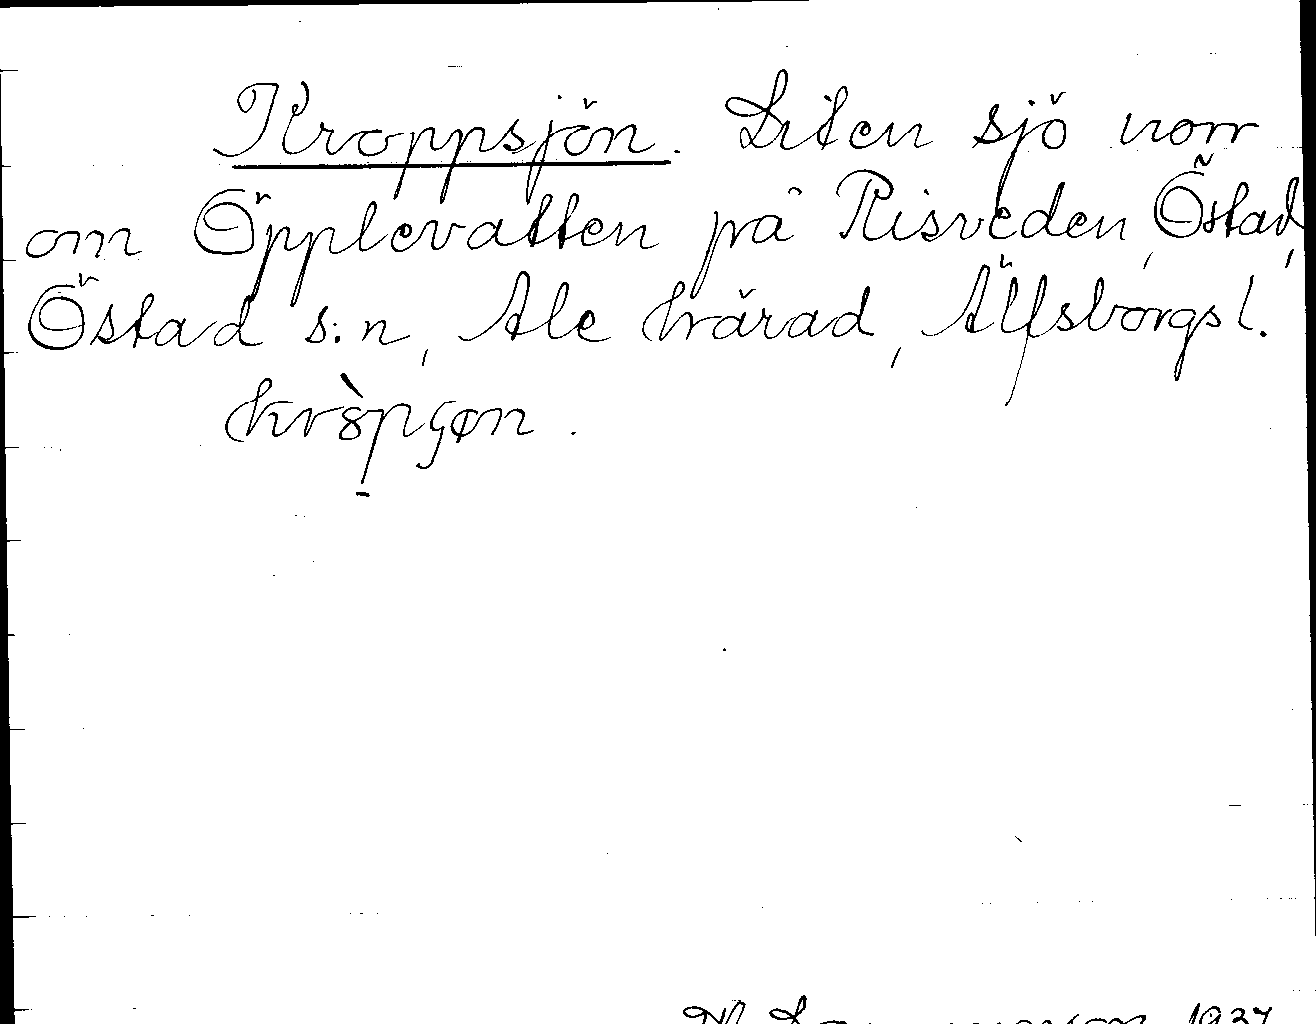 Kroppsjön. Liten sjö norr
om Öpplevatten på Risveden, Östad,
Östad s:n, Ale härad, Älfsborgs l.
1937